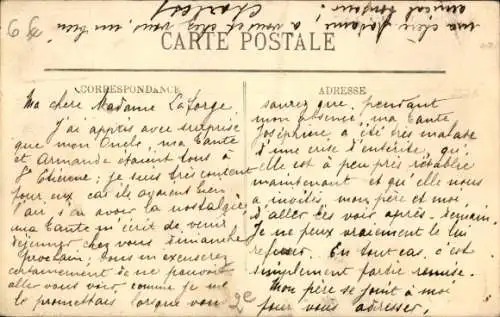 CARTE POSTALE
CORRESPONDANCE
Ma chère Madame Laforge
J'ai appris avec surprise
que mon Oncle, ma Tante
et Armande étaient tous à
St Etienne; je suis très content
pour eux car ils avaient bien
l'air d'avoir la nostalgie,
ma Tante m'écrit de venir
déjeuner chez vous dimanche
prochain; vous m'excuserez
certainement de ne pouvoir
aller vous voir comme je me
le promettais lorsque vous
2e
ADRESSE
saurez que, pendant
mon absence, ma Tante
Joséphine, a été très malade
d'une crise d'entérite, qu'
elle est à peu près rétablie
maintenant et qu'elle nous
a invités, mon père et moi
d'aller les voir après-demain.
Je ne peux vraiment le lui
refuser. En tout cas, c'est
simplement partie remise.
Mon père se joint à moi
pour vous adresser,
ma chère Madame, à vous et chez vous, un bien
amical bonjour!
Charles